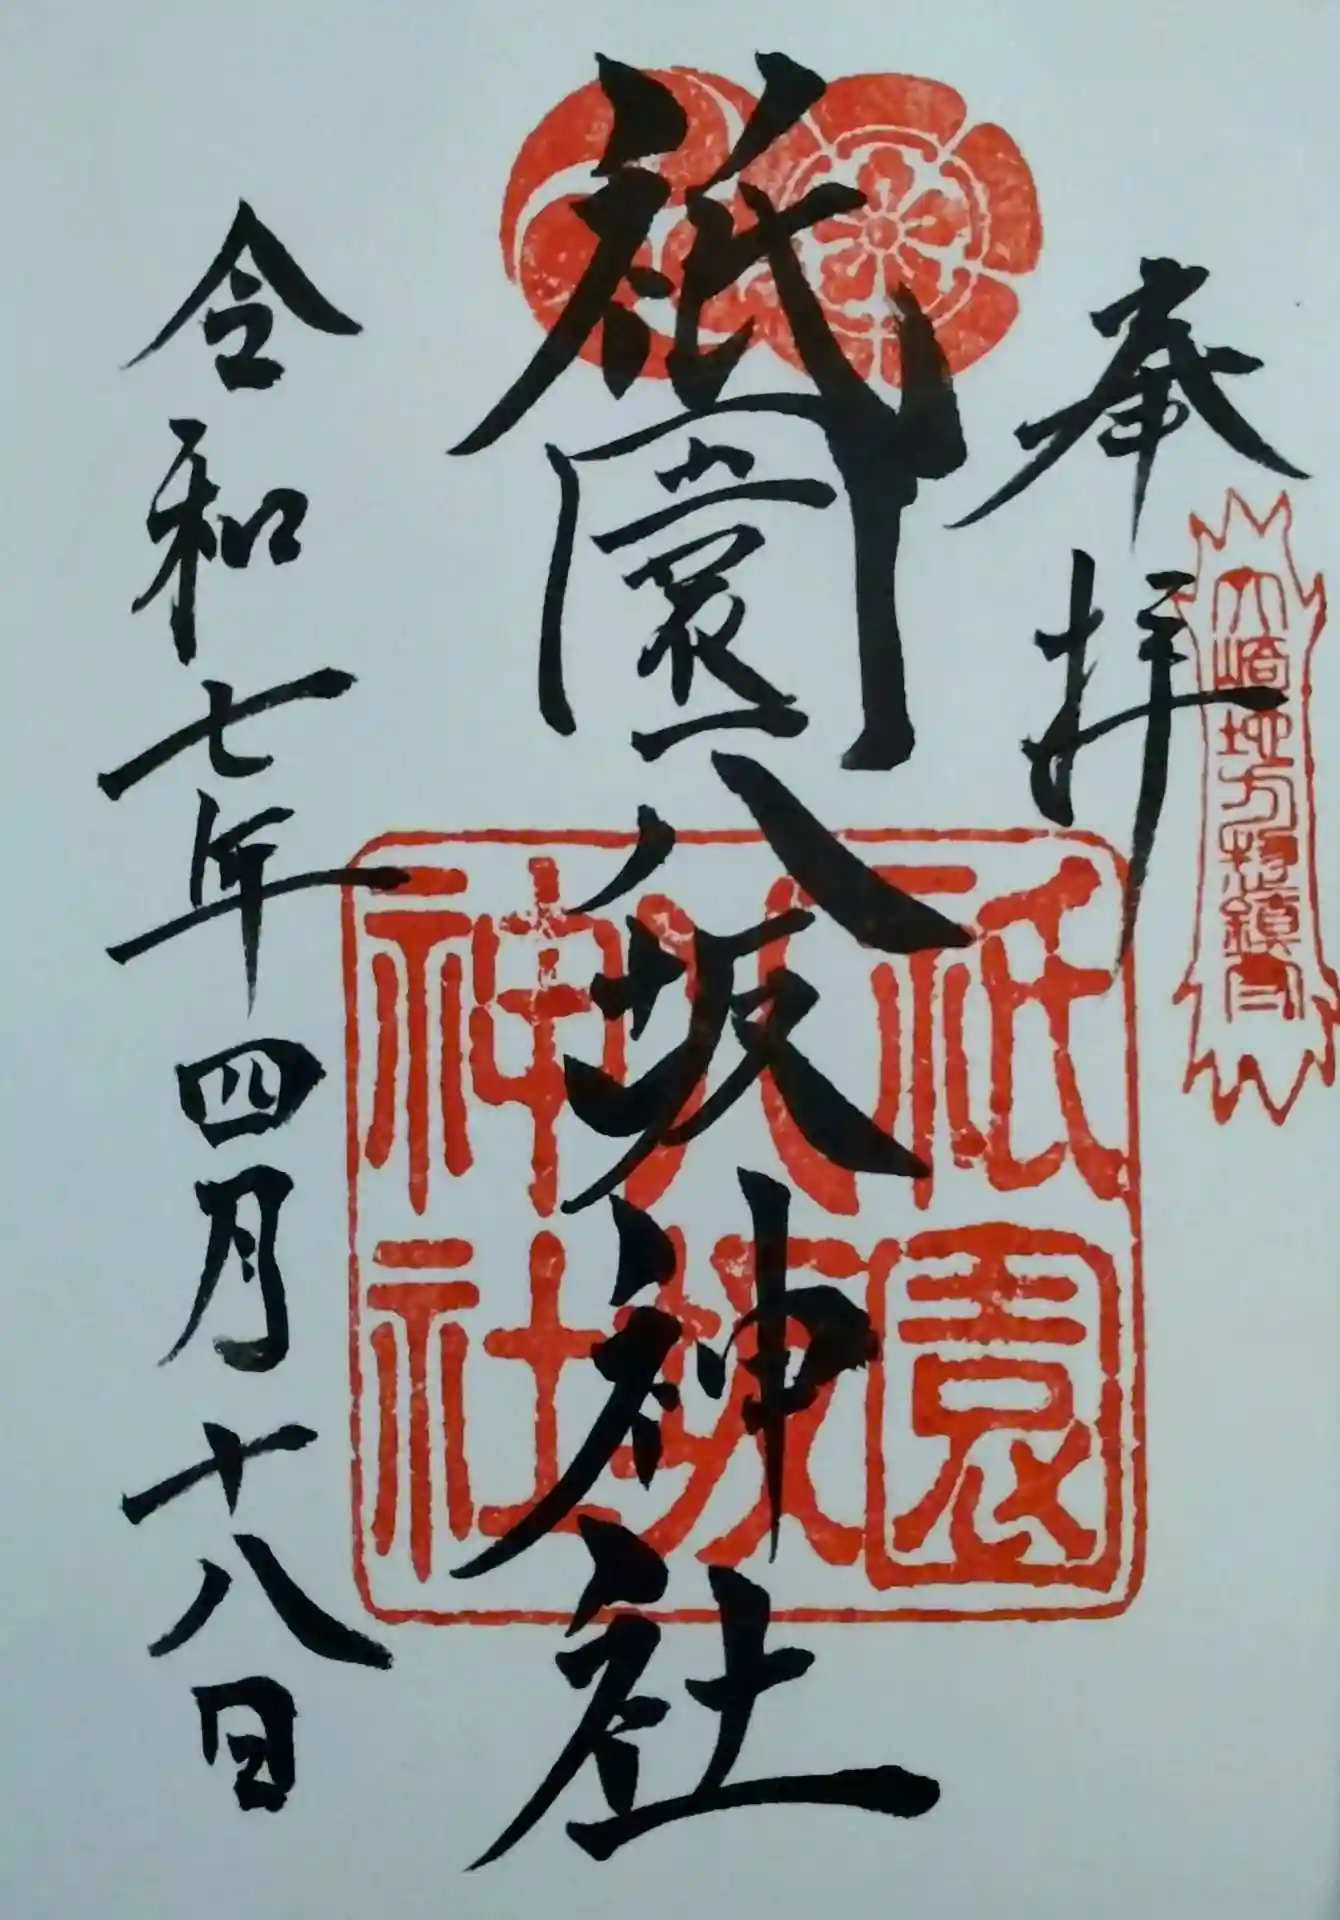 奉拝
大崎地方総鎮守
祇園八坂神社
祇園八坂神社
令和七年四月十八日